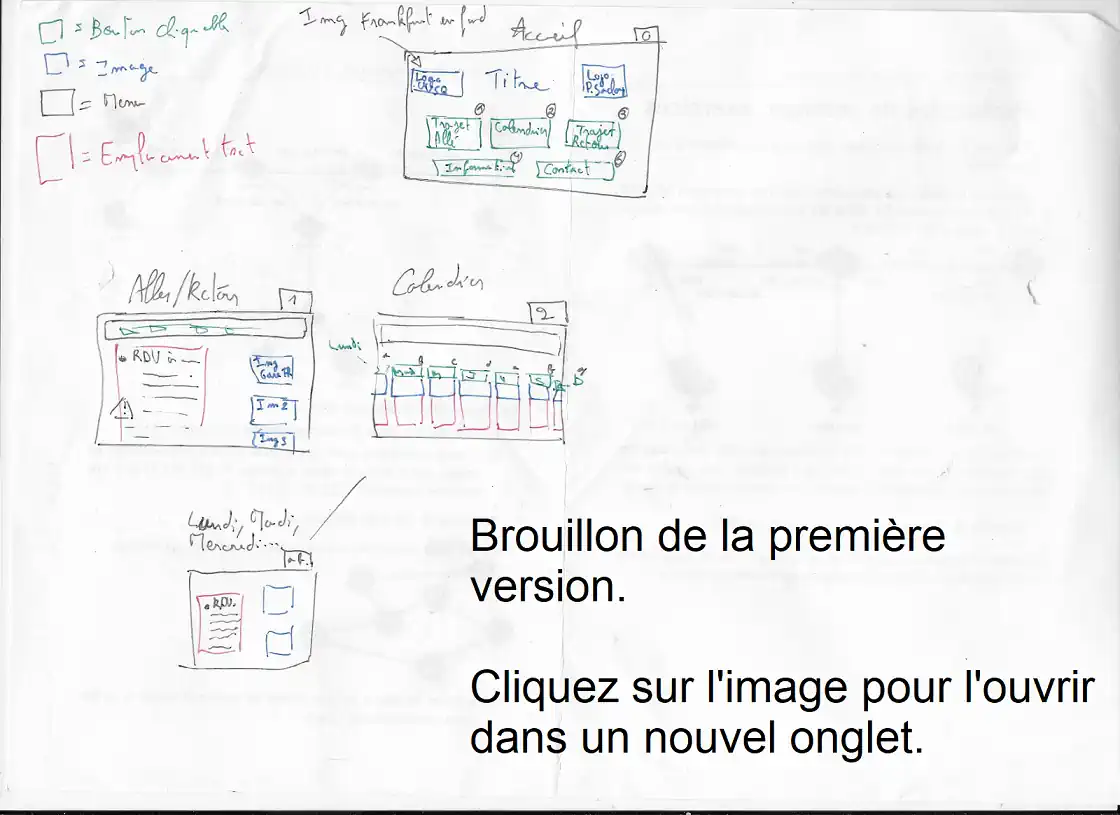 = Bouton cliquable
= Image
= Menu
= Emplacement text
Img Frankfurt en fond
Accueil
0
Logo
Titre
Logo
1
2
3
Trajet
Allé
Calendrier
Trajet
Retour
4
5
Information
Contact
Aller/Retour
1
RDV
Img
Img 2
Img 3
Calendrier
2
Lundi
Lundi, Mardi,
Mercredi...
RDV.
Brouillon de la première
version.
Cliquez sur l'image pour l'ouvrir
dans un nouvel onglet.